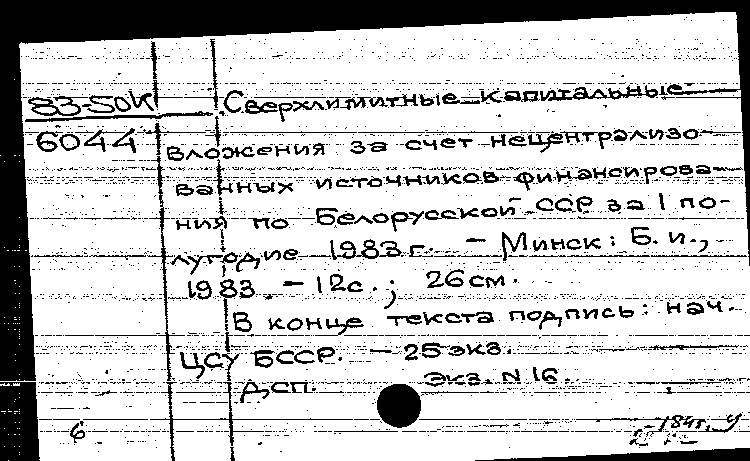 83-50к Сверхлимитные капитальные
6044 вложения за счет нецентрализо-
ванных источников финансирова-
ния по Белорусской ССР за I по-
лугодие 1983 г. - Минск: Б. и.,
1983. - 12с.; 26 см.
В конце текста подпись: нач.
ЦСУ БССР. - 25 экз.
Дсп. Экз. N 16.
6